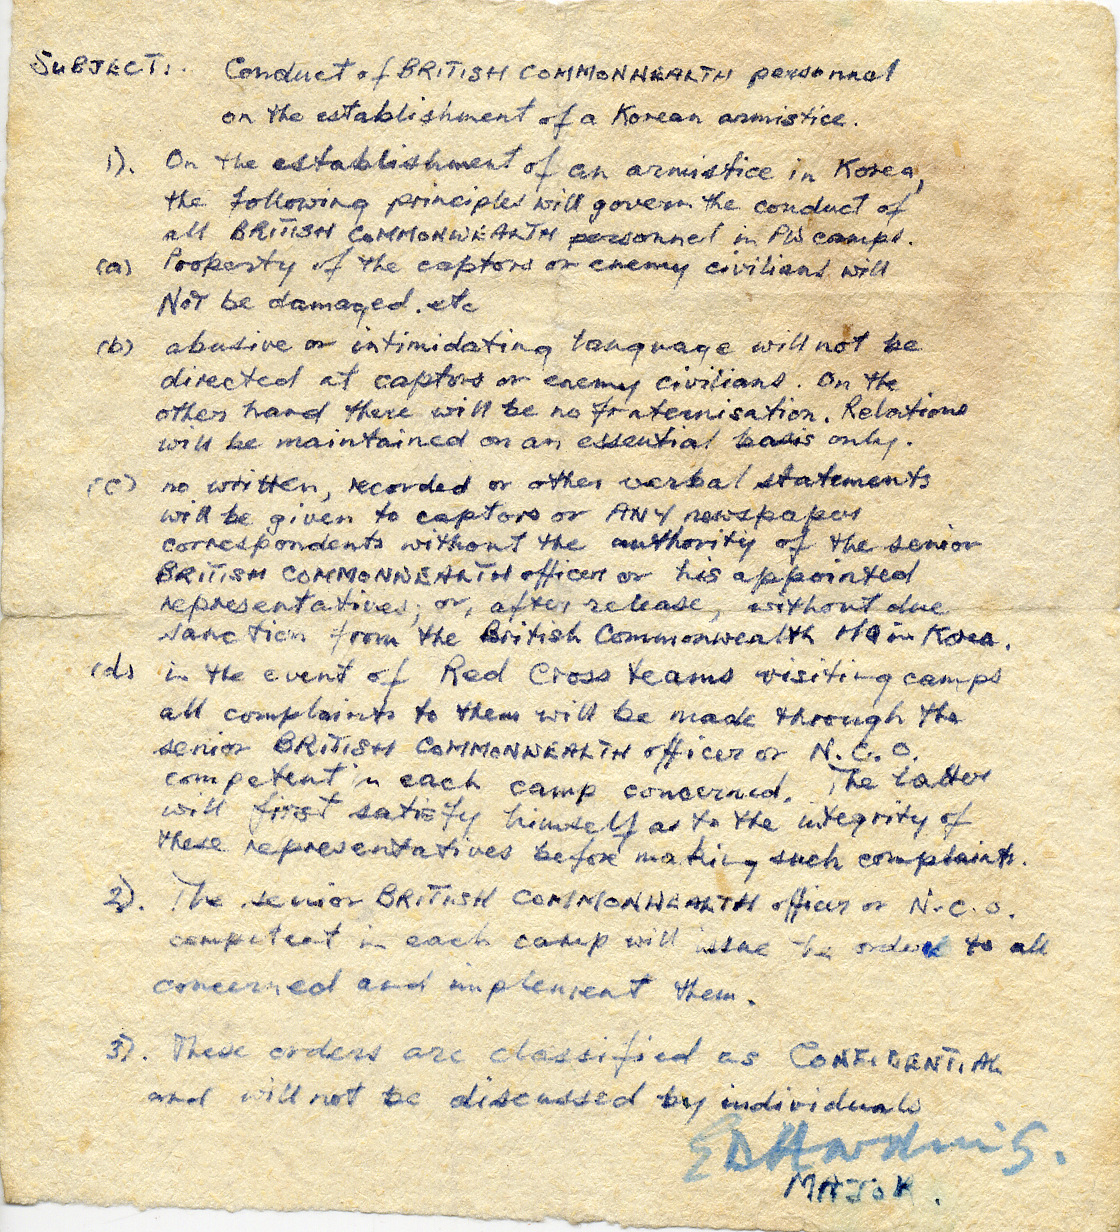 SUBJECT: Conduct of BRITISH COMMONWEALTH personnel
on the establishment of a Korean armistice.
1). On the establishment of an armistice in Korea,
the following principles will govern the conduct of
all BRITISH COMMONWEALTH personnel in PW camps.
(a) Property of the captors or enemy civilians will
Not be damaged. etc
(b) abusive or intimidating language will not be
directed at captors or enemy civilians. On the
other hand there will be no fraternisation. Relations
will be maintained on an essential basis only.
(c) no written, recorded or other verbal statements
will be given to captors or ANY newspaper
correspondents without the authority of the senior
BRITISH COMMONWEALTH officer or his appointed
representatives, or, after release, without due
sanction from the British Commonwealth HQ in Korea.
(d) in the event of Red Cross teams visiting camps
all complaints to them will be made through the
senior BRITISH COMMONWEALTH officer or N.C.O.
competent in each camp concerned. The latter
will first satisfy himself as to the integrity of
these representatives before making such complaints.
2). The senior BRITISH COMMONWEALTH officer or N.C.O.
competent in each camp will issue the orders to all
concerned and implement them.
3). These orders are classified as CONFIDENTIAL
and will not be discussed by individuals
E D Harding.
MAJOR.